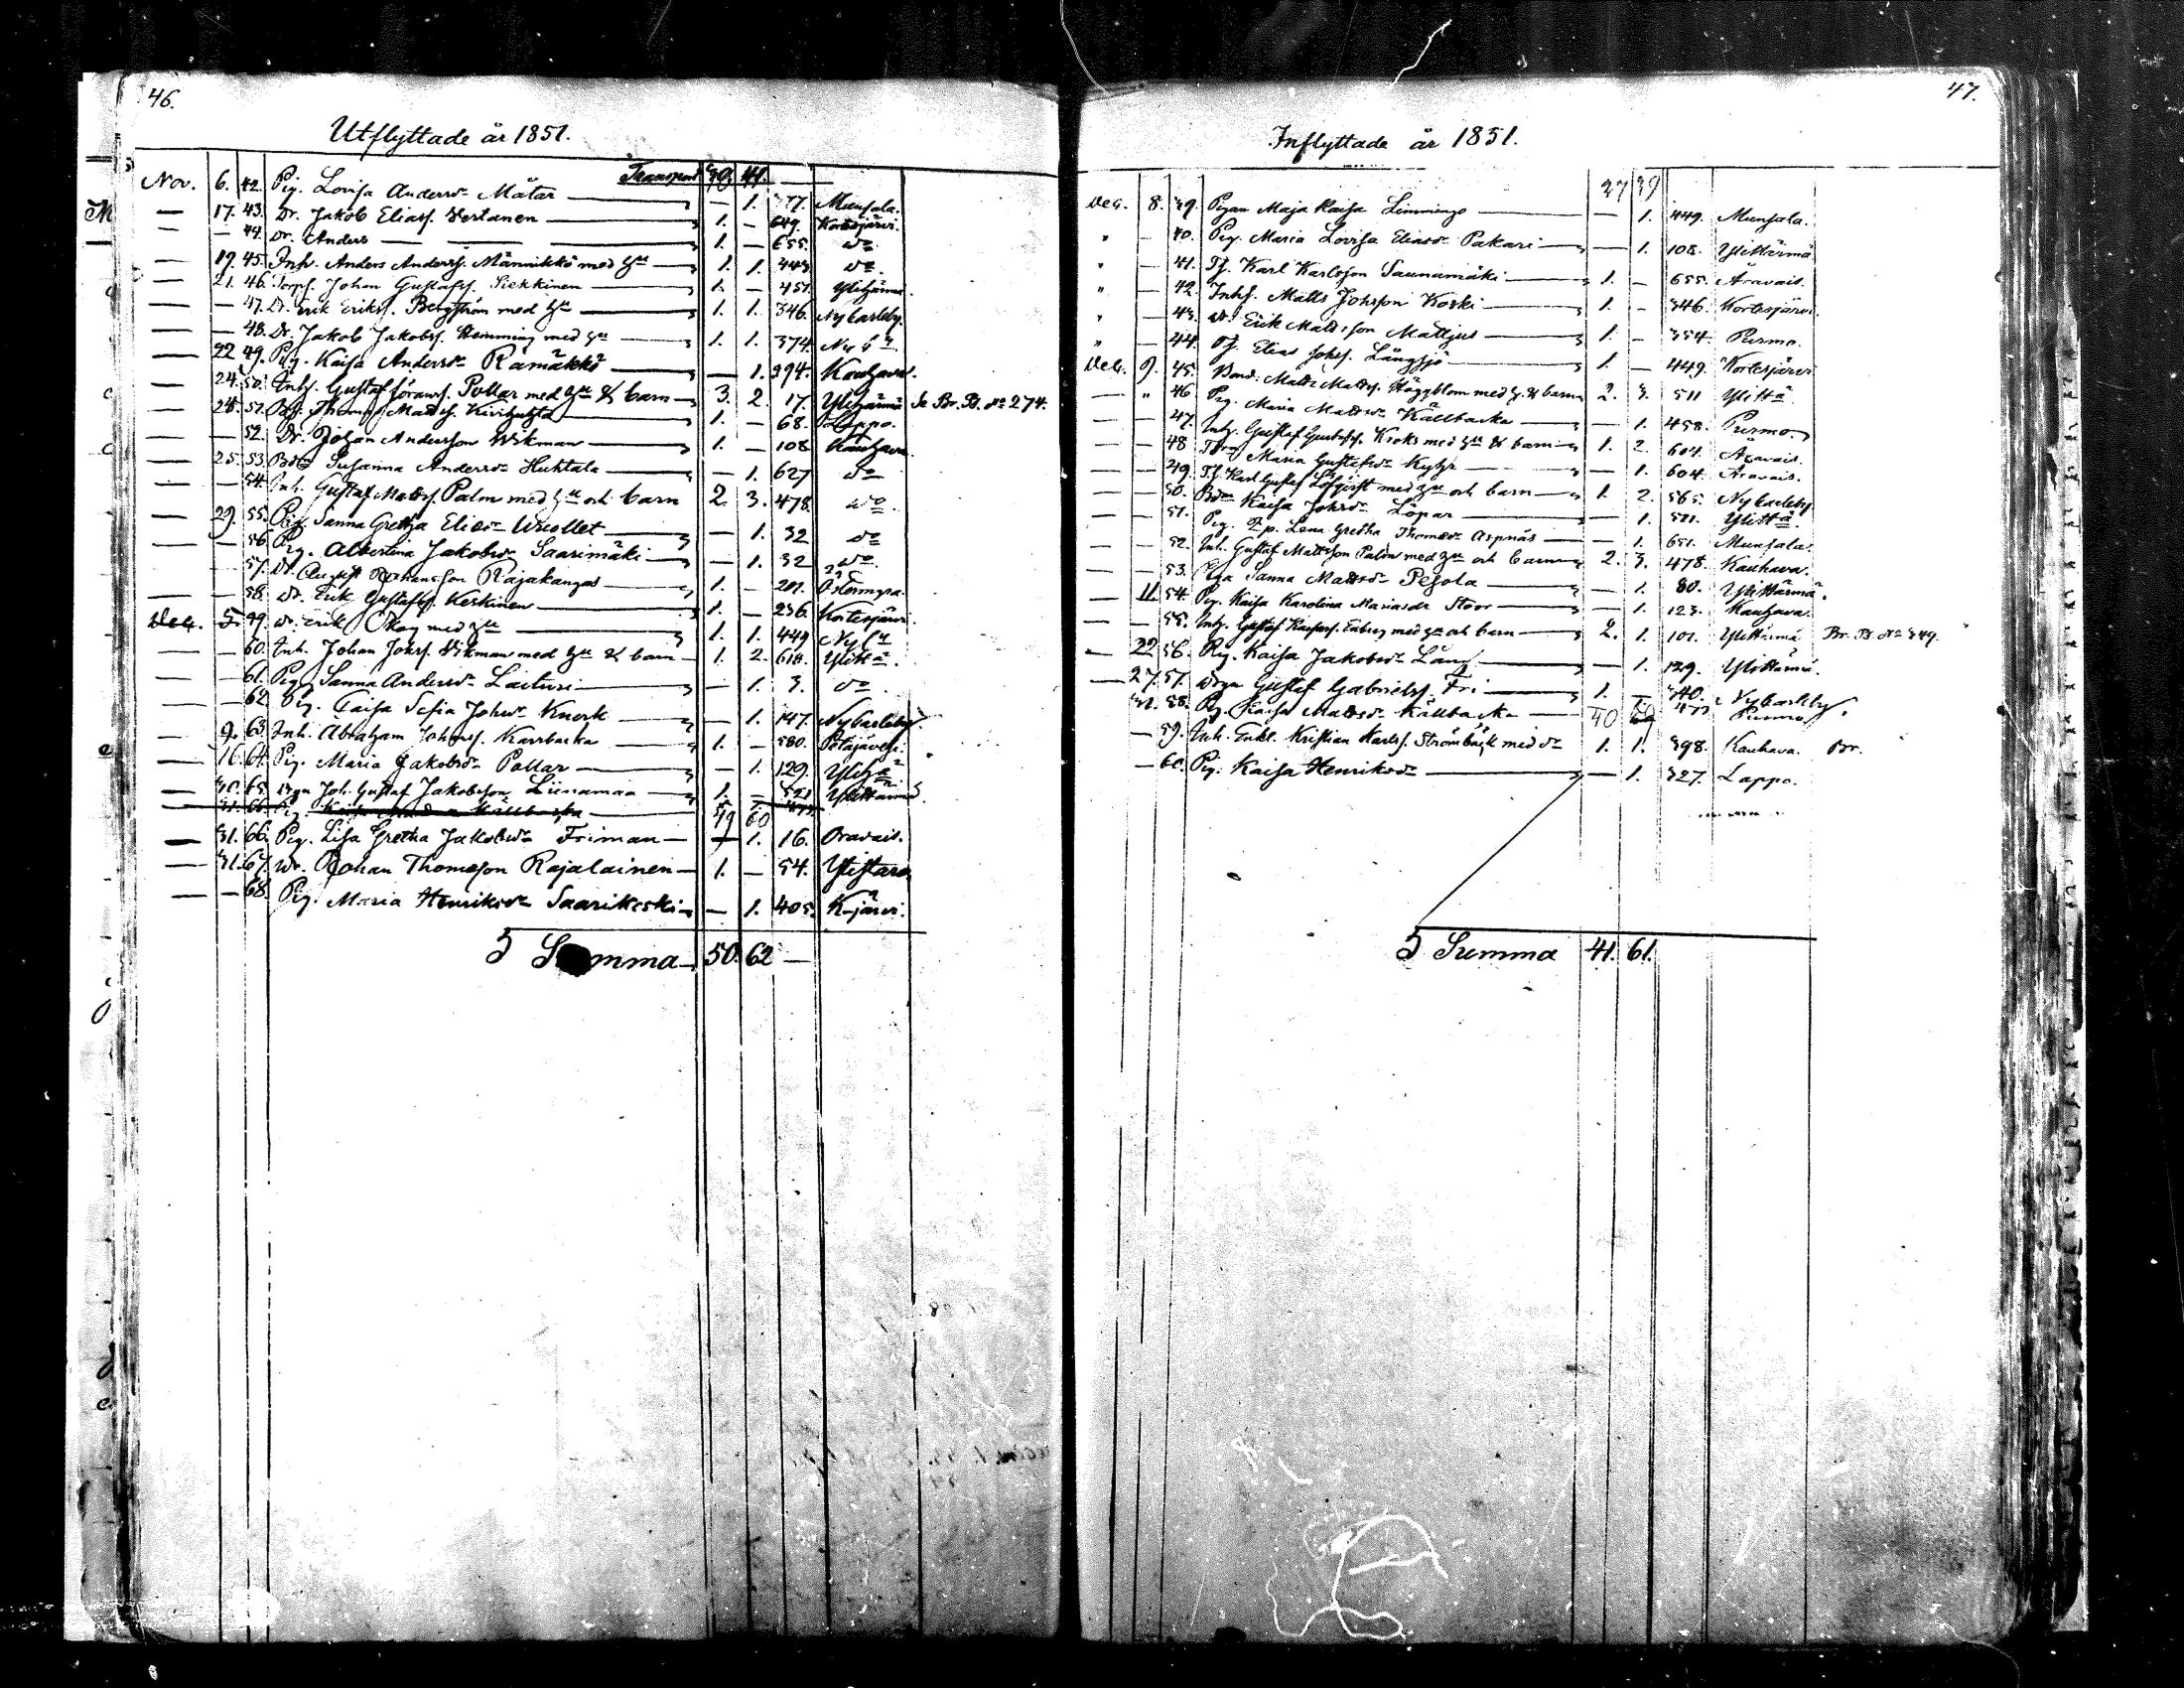 46.
Utflyttade år 1851.
Transport 39 41.
Nov. 6. 42. Pig. Lovisa Andersdr Mätar — 1. 377. Munsala.
— 17. 43. Dr. Jakob Eliass. Vertanen 1. — 649. Kortesjärvi.
— — 44. Dr. Anders — — 1. — 655. do
— 19. 45. Inh. Anders Anderss. Männikkö med hu 1. 1. 443. do.
— 21. 46. Torps. Johan Gustafss. Siekkinen 1. — 451. Ylihärmä.
— — 47. Dr. Erik Erikss. Bergström med hu 1. 1. 346. Nycarleby.
— — 48. Dr. Jakob Jakobss. Hemming med hu 1. 1. 374.
— 22 49. Pig. Kaisa Andersdr Rämäkkö — 1. 294. Kauhava.
— 24. 50. Inhs. Gustaf Göranss. Pollar med hu & barn 3. 2. 17. Ylihärmä Se Br. B. No 274.
— 28. 51. Thomas Mattss. Kivihuhta 1. — 68. Lappo.
— — 52. Dr. Johan Andersson Wikman 1. — 108 Kauhava.
— 25. 53. Susanna Andersdr Huhtala — 1. 627 do
— — 54. Inh. Gustaf Mattss. Palm med hu och barn 2. 3. 478. do.
— 29. 55. Pig. Sanna Gretha Eliasdr — 1. 32 do
— — 56. Pig. Albertina Jakobsdr Saarimäki — 1. 32 do.
57. Dr. August Johansson Rajakangas 1. — 201. Östermyra.
— — 58. Dr. Erik Gustafss. Keskinen 1. — 236. Kortesjärvi.
Dec. 5. 59. Dr. Erik Skog med hu 1. 1. 449
— — 60. Inh. Johan Johss. Vikman med hu & barn 1. 2. 618.
— — 61. Pig. Sanna Andersdr Laituri — 1. 3. do.
— — 62. Pig. Caisa Sofia Johsdr Knork — 1. 147. Nycarleby.
— 9. 63. Inh. Abraham Johanss. Karrbacka 1. — 580.
— 16. 64. Pig. Maria Jakobsdr Pollar — 1. 129.
— 30. 65. Joh. Gustaf Jakobsson Liinamaa 1. — 521 Ylistärmä.
31. 66. Pig. Kaisa Källbacka
49 60
— 31. 66. Pig. Lisa Gretha Jakobsdr Friman — 1. 16. Oravais.
— 31. 67. Dr. Johan Thomasson Rajalainen 1. — 54. Ylistaro
— — 68. Pig. Maria Henriksdr Saarikoski — 1. 405. K-järvi.
Summa 50. 62 —
47.
Inflyttade år 1851.
37 39
Dec. 8. 39. Pigan Maja Kaisa Limmingo — 1. 449. Munsala.
" — 40. Pig. Maria Lovisa Eliasdr Pakari — 1. 108. Ylihärmä
" — 41. Tj. Karl Karlsson Saunamäki 1. — 655. Oravais.
" — 42. Inhs. Matts Johsson Koski 1. — 346. Kortesjärvi.
" — 43. Dr. Erik Mattsson Mattjus 1. — 354. Purmo.
" — 44. Elias Johss. Långsjö 1. — 449. Kortesjärvi
Dec. 9. 45. Bond. Matts Mattss. Häggblom med h. & barn 2. 3. 511
— " 46 Pig. Maria Mattsdr Källbacka — 1. 458. Purmo
— — 47. Inh. Gustaf Gustafss. Kroks med hu & barn 1. 2. 604. Oravais.
— — 48 Maria Gustafsdr — 1. 604. Oravais.
— — 49. Tj. Karl Gustaf Löfqvist med hu och barn 1. 2. 565. Nykarleby
— — 50. Kaisa Johsdr Löpar — 1. 511.
51. Pig. Lena Gretha Thomasdr Aspnäs — 1. 651. Munsala.
— — 52. Inh. Gustaf Mattsson Palm med hu och barn 2. 3. 478. Kauhava.
— — 53. Sanna Mattsdr Pesola — 1. 80. Ylihärmä.
— 11. 54. Pig. Kaisa Karolina Mariasdr Stoor — 1. 123. Kauhava.
— — 55. Inhs. Gustaf Enberg med hu och barn 2. 1. 101. Ylihärmä Br. B. No 349.
— 22 56. Pig. Kaisa Jakobsdr Lång — 1. 129. Ylihärmä.
— 27. 57. Gustaf Gabrielss. Fri 1. — 340. Nykarleby.
31. 58. Pig. Kaisa Mattsdr Källbacka 40 60 473 Purmo
— 59. Inh. Enkl. Kristian Karlss. Strömbäck med do 1. 1. 398. Kauhava. Br.
— 60. Pig. Kaisa Henriksdr — 1. 327. Lappo.
Summa 41. 61.